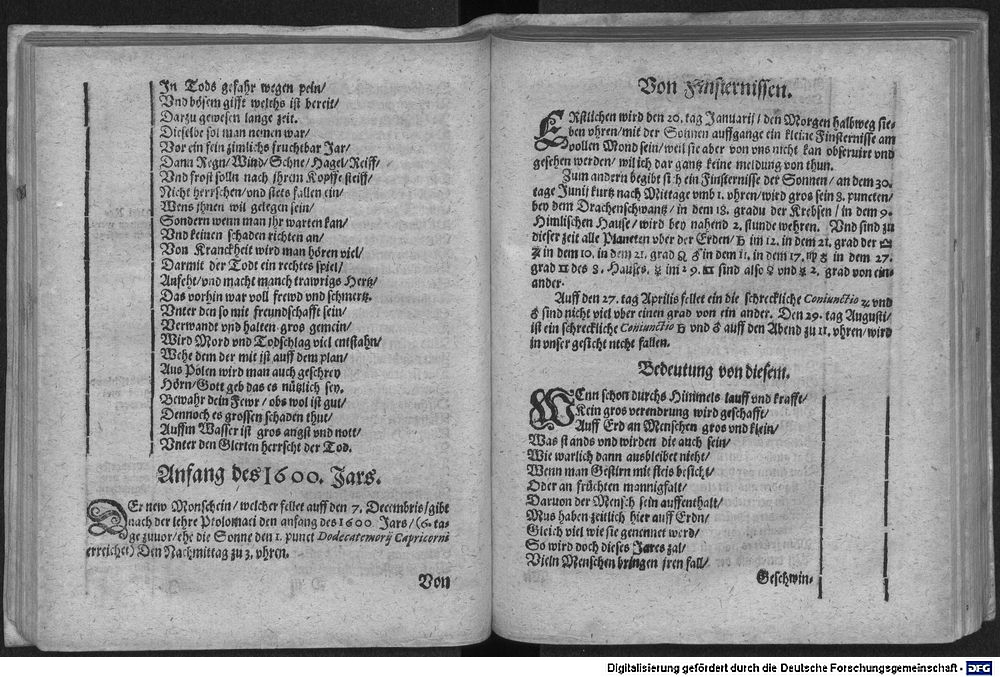 In Tods gefahr wegen pein/
Vnd bösem gifft welchs ist bereit/
Darzu gewesen lange zeit.
Dieselbe sol man nemen war/
Vor ein fein zimlichs fruchtbar Jar/
Dann Regn/ Wind/ Schne/ Hagel/ Reiff/
Vnd frost solln nach jhrem Kopffe steiff/
Nicht herrschen/ vnd stets fallen ein/
Wens jhnen wil gelegen sein/
Sondern wenn man jhr warten kan/
Vnd keinen schaden richten an/
Von Kranckheit wird man hören viel/
Darmit der Todt ein rechtes spiel/
Anfeht/ vnd macht manch trawrigs Hertz/
Das vorhin war voll frewd vnd schmertz.
Vnter den so mit freundschafft sein/
Verwandt vnd halten gros gemein/
Wird Mord vnd Todschlag viel entstahn/
Wehe dem der mit ist auff dem plan/
Aus Polen wird man auch geschrey
Hörn/ Gott geb das es nützlich sey.
Bewahr dein Fewr/ obs wol ist gut/
Dennoch es grossen schaden thut/
Auffm Wasser ist gros angst vnd nott/
Vnter den Gierten herrscht der Tod.
Anfang des 1600. Jars.
DEr new Monschein/ welcher fellet auff den 7. Decembris/ gibt
nach der lehre Ptolomæi den anfang des 1600. Jars/ (6. ta-
ge zuuor/ ehe die Sonne den 1. punct Dodecatemorij Capricorni
erreichet) Den Nachmittag zu 3, vhren.
Von
Von Finsternissen.
ERstlichen wird den 20. tag Januarij/ den Morgen halbweg sie-
ben vhren/ mit der Sonnen auffgange ein kleine Finsternisse am
vollen Mond sein/ weil sie aber von vns nicht kan obseruirt vnd
gesehen werden/ wil ich dar gantz keine meldung von thun.
Zum andern begibt sich ein Finsternisse der Sonnen/ an dem 30.
tage Junij kurtz nach Mittage vmb 1. vhren/ wird gros sein 8. puncten/
bey dem Drachenschwantz/ in dem 18. gradu der Krebsen/ in dem 9.
Himlischen Hause/ wird bey nahend 2. stunde wehren. Vnd sind zu
dieser zeit alle Planeten vber der Erden/ ♄ im 12. in dem 21. grad der ♎
♃ in dem 10. in dem 21. grad ♌ ♂ in dem 11. in dem 17. ♍ ☿ in dem 27.
grad ♊ des 8. Hauses. ☿ im 29. ♊ sind also ♀ vnd ☿ 2. grad von ein-
ander.
Auff den 27. tag Aprilis fellet ein die schreckliche Coniunctio ♃ vnd
♂ sind nicht viel vber einen grad von ein ander. Den 29. tag Augusti/
ist ein schreckliche Coniunctio ♄ vnd ♂ auff den Abend zu 11. vhren/ wird
in vnser gesicht nicht fallen.
Bedeutung von diesem.
WEnn schon durchs Himmels lauff vnd krafft/
Kein gros verendrung wird geschafft/
Auff Erd an Menschen gros vnd klein/
Was stands vnd wirden die auch sein/
Wie warlich dann ausbleibet nicht/
Wenn man Gestirn mit fleis besicht/
Oder an früchten mannigfalt/
Daruon der Mensch sein auffenthalt/
Mus haben zeitlich hier auff Erdn/
Gleich viel wie sie genennet werd/
So wird doch dieses Jares zal/
Vieln Menschen bringen jren fall/
Geschwin-
Digitalisierung gefördert durch die Deutsche Forschungsgemeinschaft - DFG